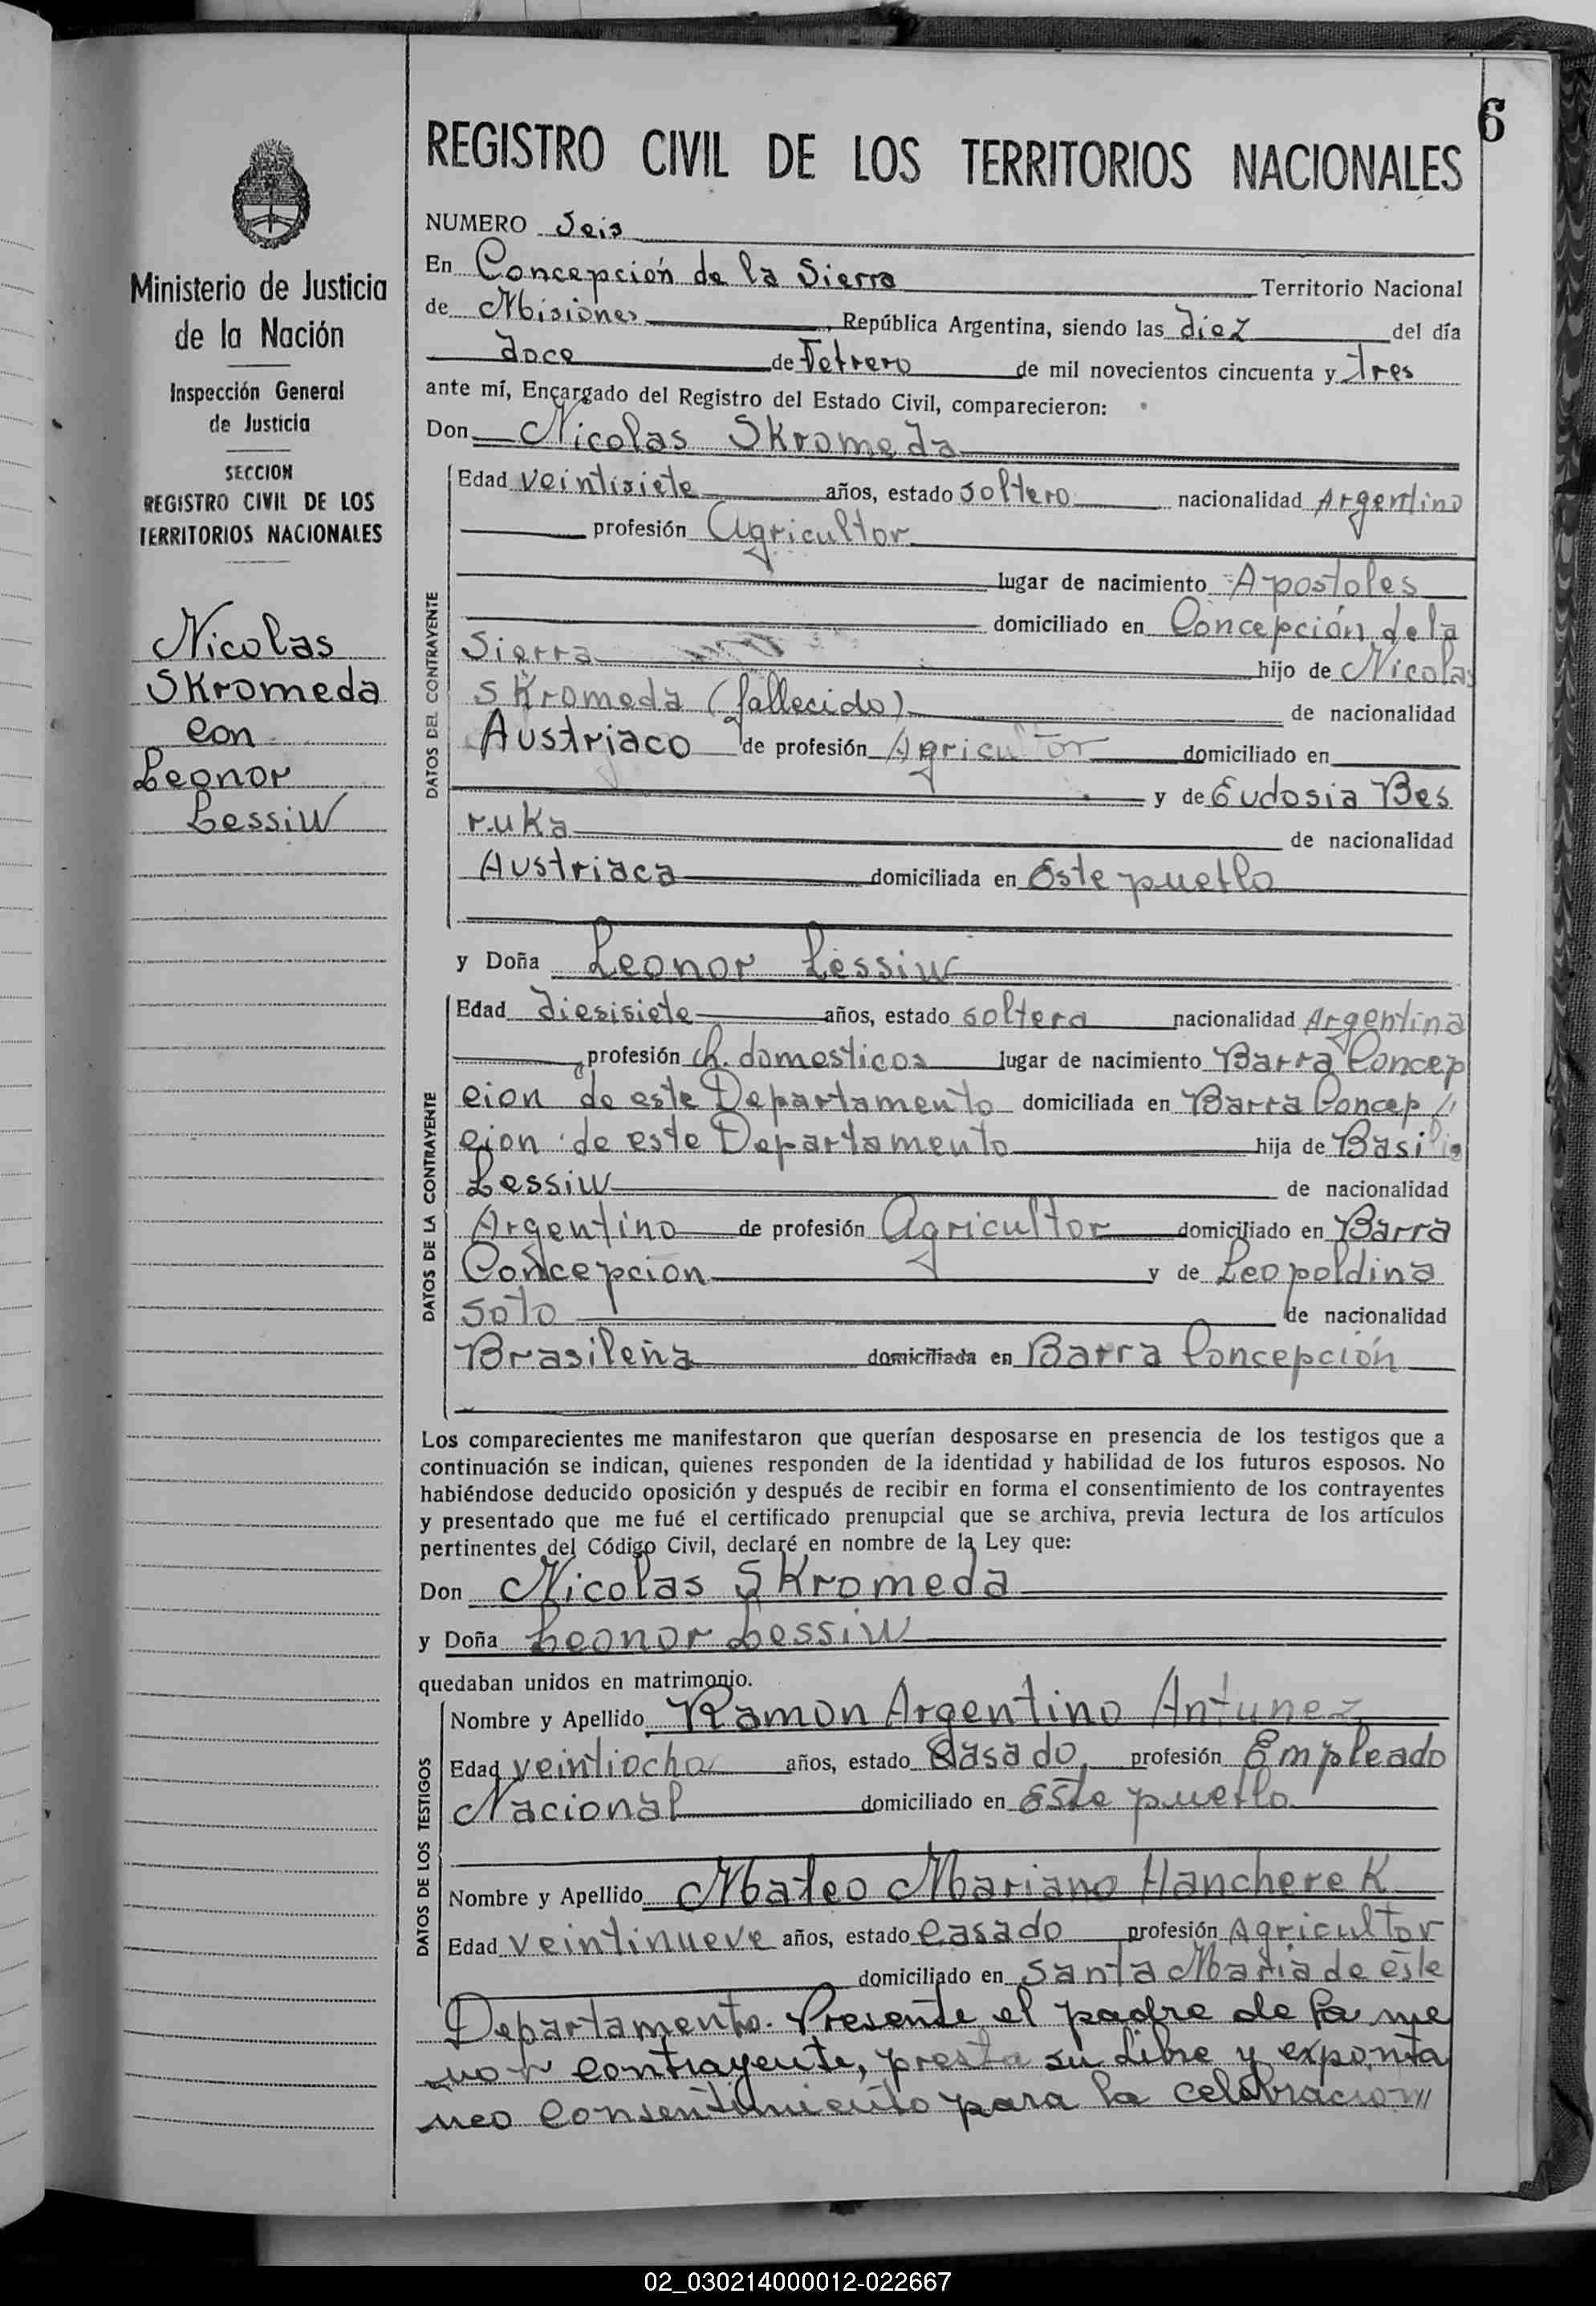 6
REGISTRO CIVIL DE LOS TERRITORIOS NACIONALES
Ministerio de Justicia
de la Nación
Inspección General
de Justicia
SECCION
REGISTRO CIVIL DE LOS
TERRITORIOS NACIONALES
Nicolas
Skromeda
con
Leonor
Lessiw
NUMERO Seis
En Concepción de la Sierra Territorio Nacional
de Misiones, República Argentina, siendo las diez del día
doce de Febrero de mil novecientos cincuenta y tres
ante mí, Encargado del Registro del Estado Civil, comparecieron:
Don Nicolas Skromeda
DATOS DEL CONTRAYENTE
Edad veintisiete años, estado soltero nacionalidad Argentino
profesión Agricultor
lugar de nacimiento Apostoles
domiciliado en Concepción de la
Sierra hijo de Nicolas
Skromeda (fallecido) de nacionalidad
Austriaco de profesión Agricultor domiciliado en
y de Eudosia Bes
ruka de nacionalidad
Austriaca domiciliada en Este pueblo
y Doña Leonor Lessiw
DATOS DE LA CONTRAYENTE
Edad diesisiete años, estado soltera nacionalidad Argentina
profesión q. domesticos lugar de nacimiento Barra Concep
cion de este Departamento domiciliada en Barra Concep //
cion de este Departamento hija de Basilio
Lessiw de nacionalidad
Argentino de profesión Agricultor domiciliado en Barra
Concepcion y de Leopoldina
Soto de nacionalidad
Brasileña domiciliada en Barra Concepción
Los comparecientes me manifestaron que querían desposarse en presencia de los testigos que a
continuación se indican, quienes responden de la identidad y habilidad de los futuros esposos. No
habiéndose deducido oposición y después de recibir en forma el consentimiento de los contrayentes
y presentado que me fué el certificado prenupcial que se archiva, previa lectura de los artículos
pertinentes del Código Civil, declaré en nombre de la Ley que:
Don Nicolas Skromeda
y Doña Leonor Lessiw
quedaban unidos en matrimonio.
DATOS DE LOS TESTIGOS
Nombre y Apellido Ramon Argentino Antunez
Edad veintiocho años, estado Casado, profesión Empleado
Nacional domiciliado en Este pueblo
Nombre y Apellido Mateo Mariano Hancherek
Edad veintinueve años, estado casado profesión Agricultor
domiciliado en Santa Maria de este
Departamento. Presente el padre de la me
nor contrayente, presta su libre y exponta
neo consentimiento para la celebracion //
02_030214000012-022667